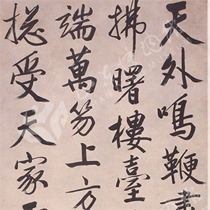 天外鳴鞭
拂曙樓臺
端萬笏上方
揔受天家